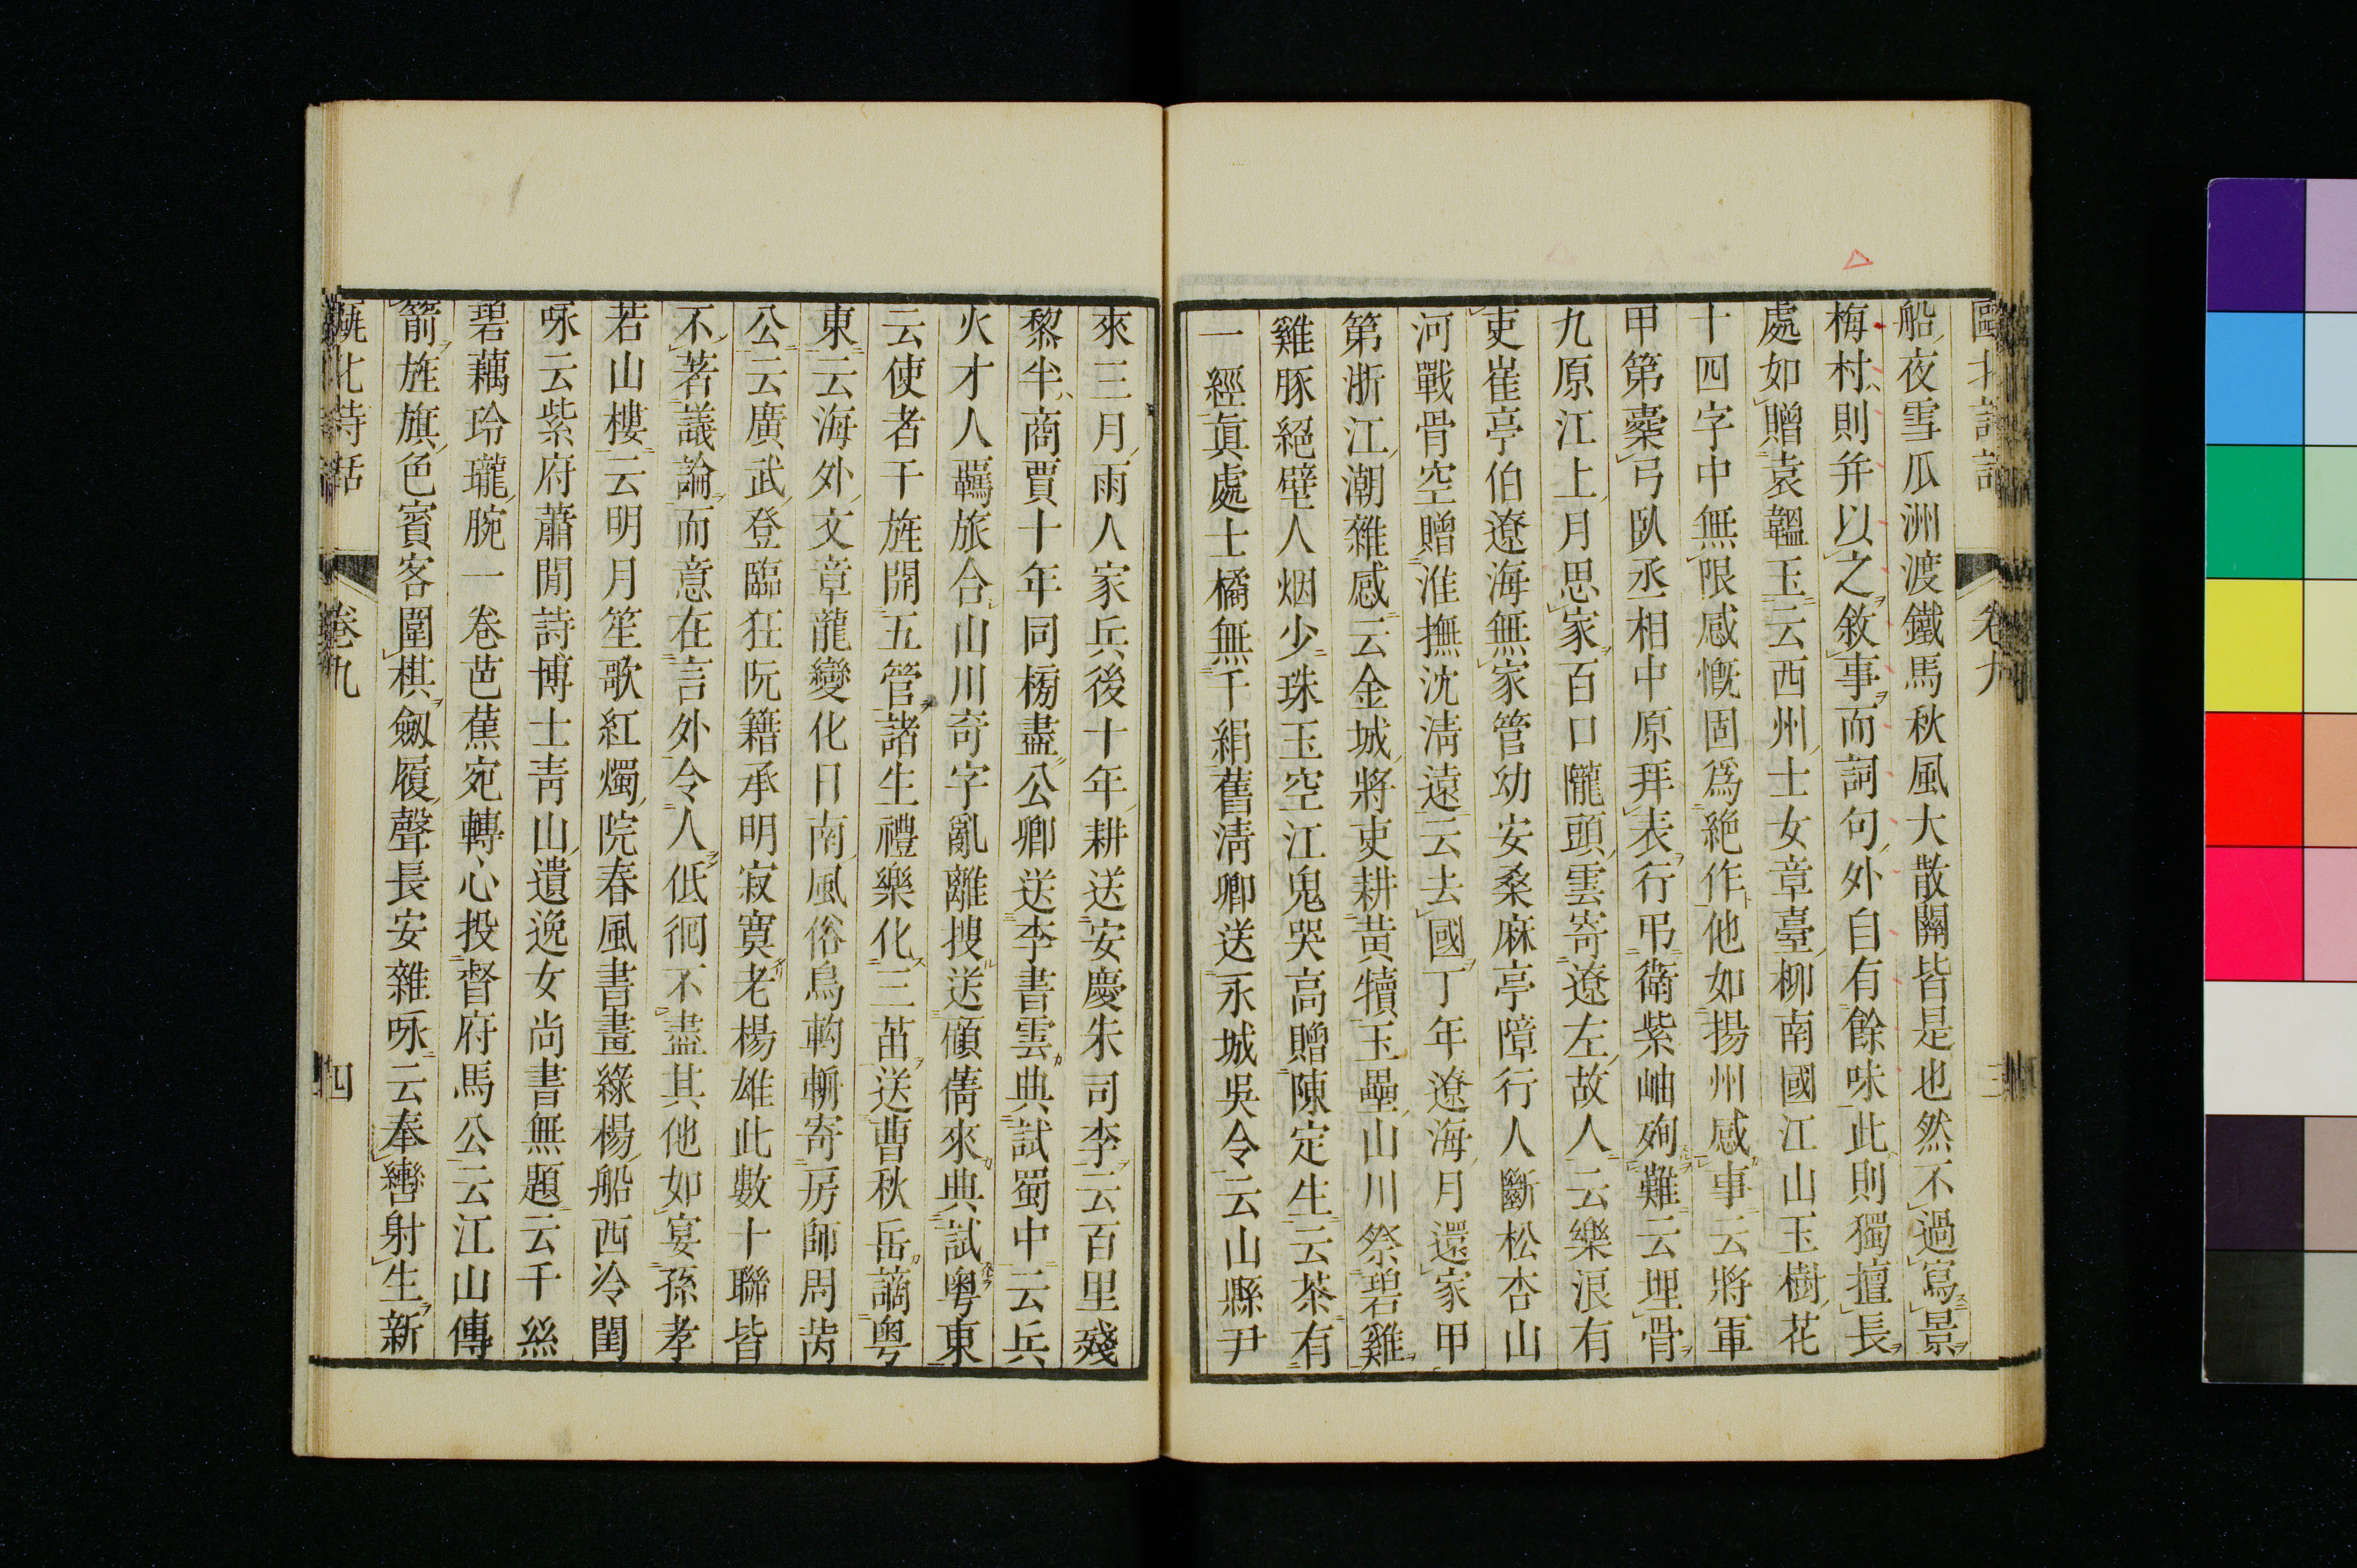 船夜雪瓜洲渡鐵馬秋風大散關皆是也然不過寫景
梅村則并以之敘事而詞句外自有餘味此則獨擅長
處如贈袁韞玉云西州士女章臺柳南國江山玉樹花
十四字中無限感慨固為絶作他如揚州感事云將軍
甲第櫜弓臥丞相中原拜表行弔衛紫岫殉難云埋骨
九原江上月思家百口隴頭雲寄遼左故人云樂浪有
吏崔亭伯遼海無家管幼安桑麻亭障行人斷松杏山
河戰骨空贈淮撫沈清遠云去國丁年遼海月還家甲
第浙江潮雜感云金城將吏耕黃犢玉壘山川祭碧雞
雞豚絕壁人烟少珠玉空江鬼哭高贈陳定生云茶有
一經眞處士橘無千絹舊淸卿送永城吳令云山縣尹
來三月雨人家兵後十年耕送安慶朱司李云百里殘
黎半商賈十年同榜盡公卿送李書雲典試蜀中云兵
火才人羈旅合山川奇字亂離搜送顧蒨來典試粤東
云使者干旌開五管諸生禮樂化三苗送曹秋岳謫粤
東云海外文章龍變化日南風俗鳥軥輈寄房師周芮
公云廣武登臨狂阮籍承明寂寞老楊雄此數十聯皆
不著議論而意在言外令人低徊不盡其他如宴孫孝
若山樓云明月笙歌紅燭院春風書畫綠楊船西泠閨
咏云紫府蕭閒詩博士青山遺逸女尚書無題云千絲
碧藕玲瓏腕一卷芭蕉宛轉心投督府馬公云江山傳
箭旌旗色賓客圍棋劒履聲長安雜咏云奉轡射生新
甌北詩話 卷九 四